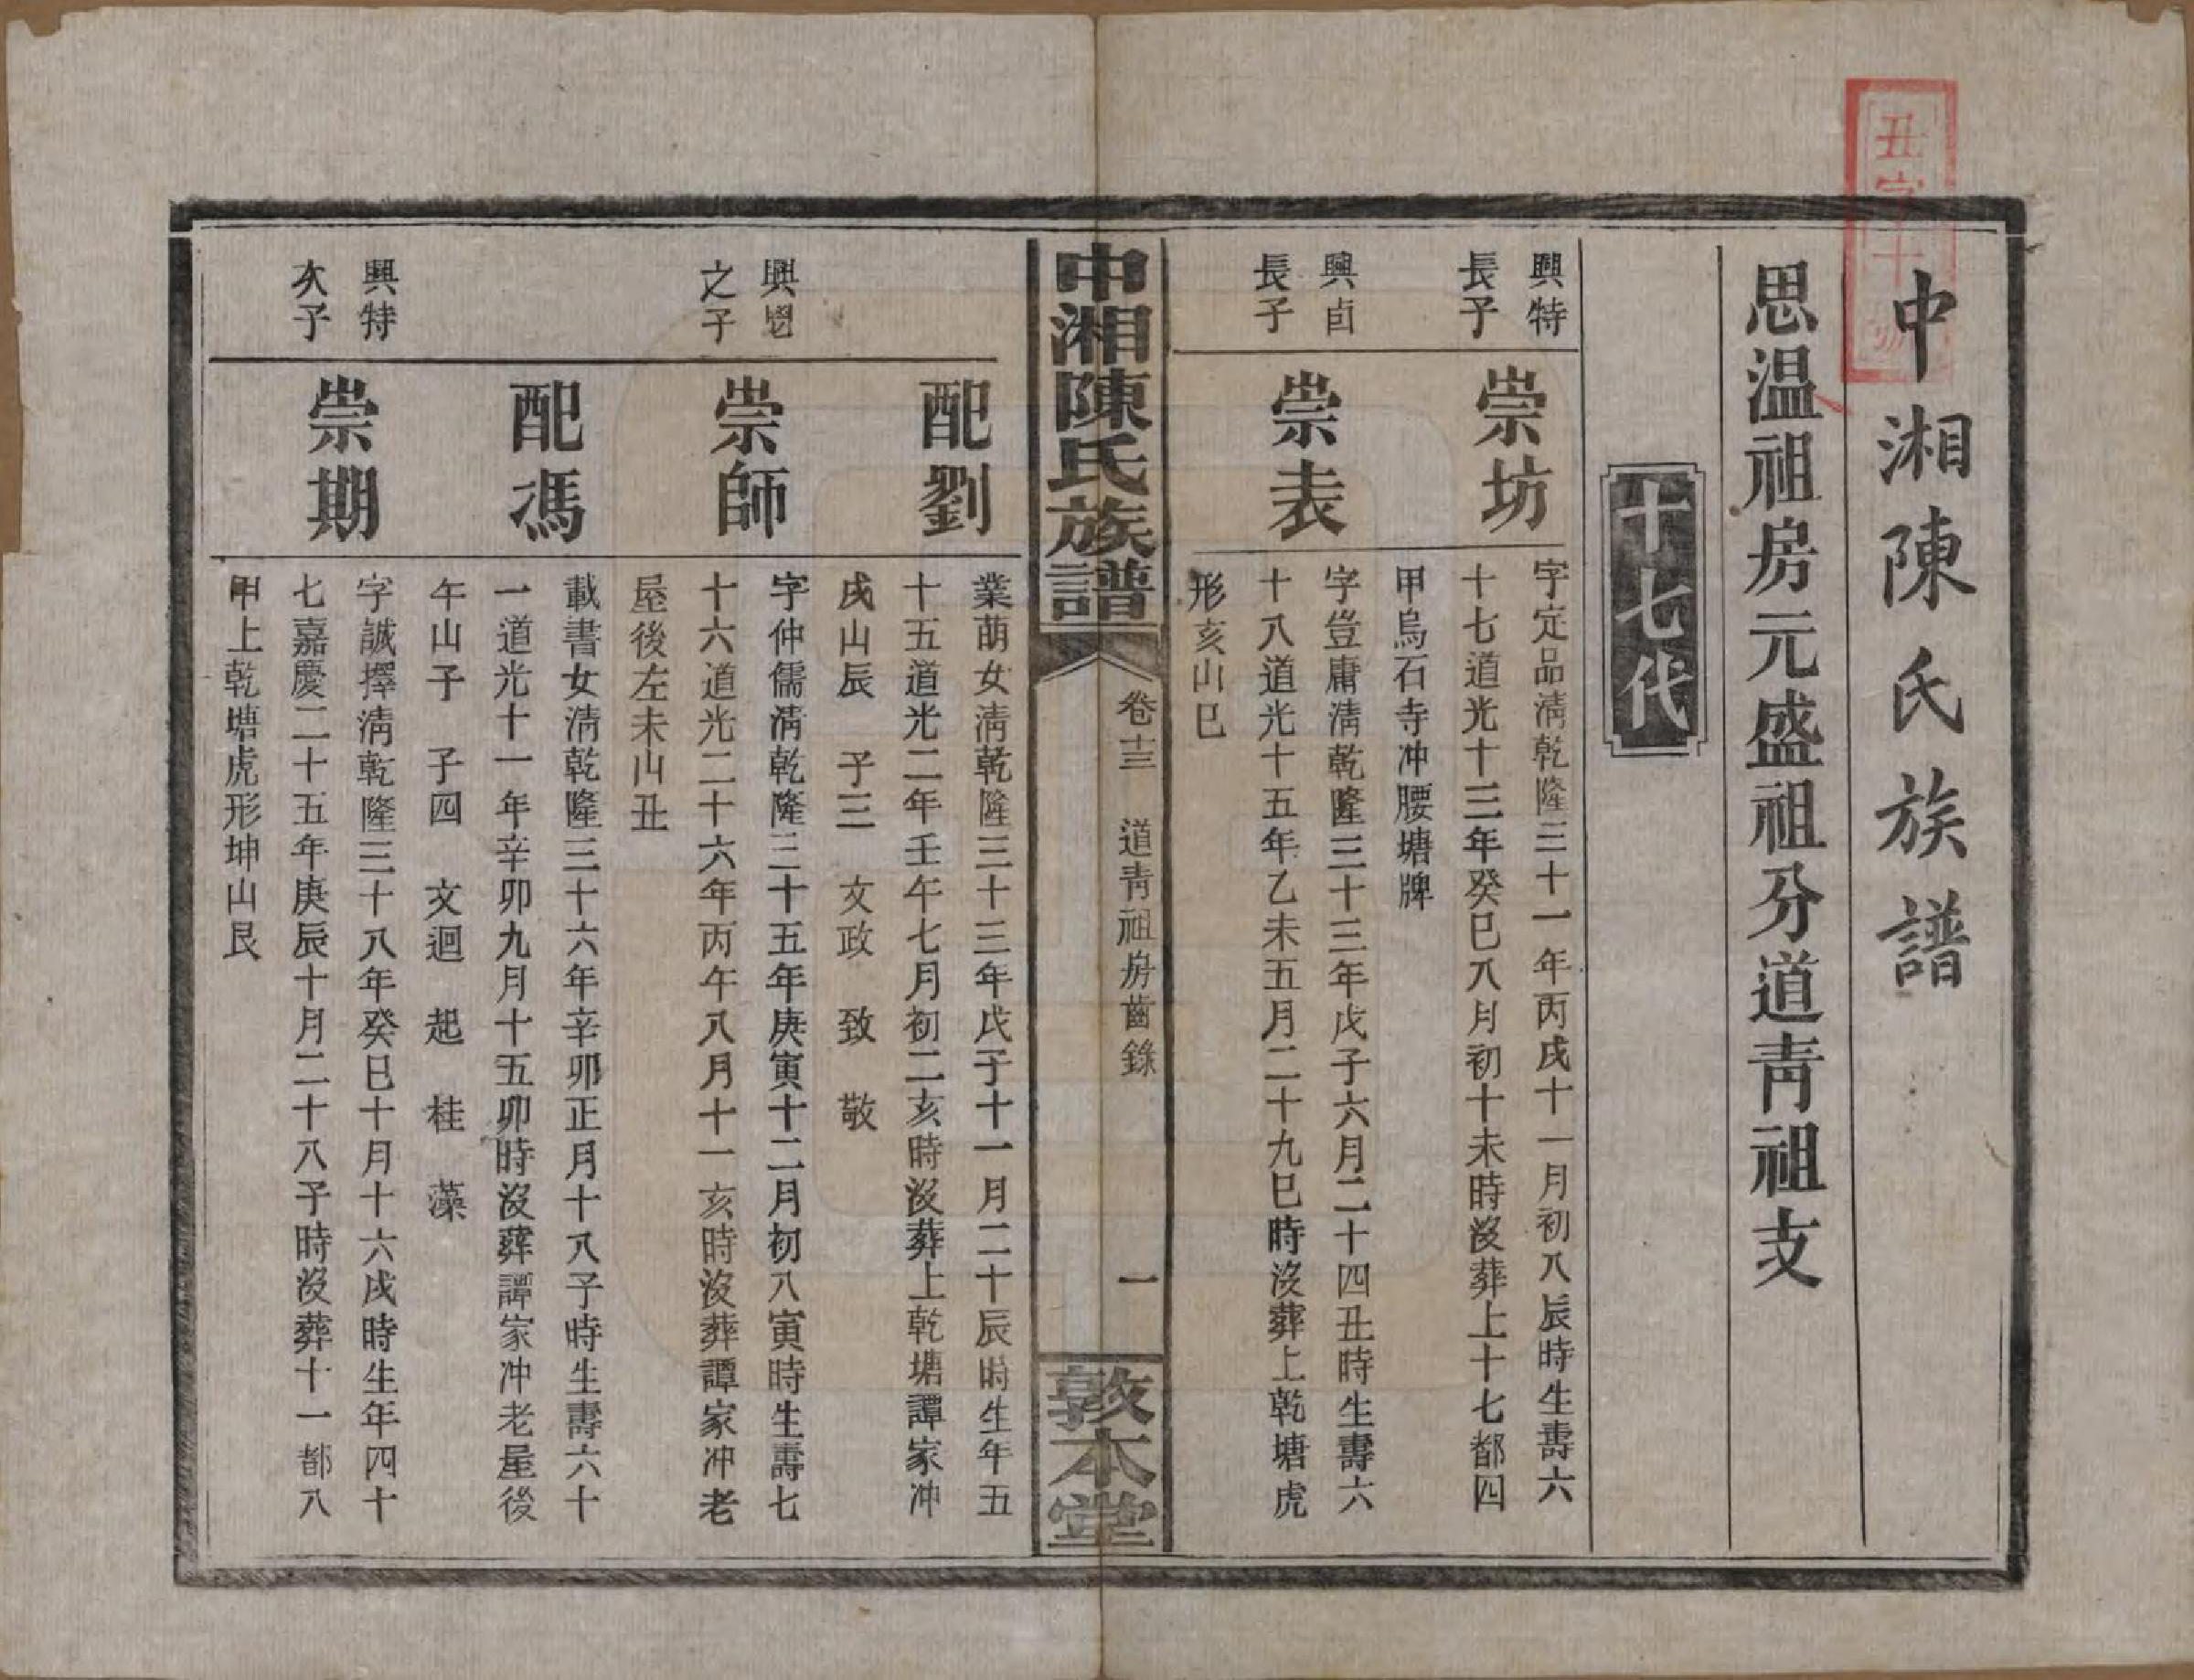 丑字十
中湘陳氏族譜
思温祖房元盛祖分道青祖支
十七代
興特
長子
崇坊
字定品淸乾隆三十一年丙戌十一月初八辰時生壽六
十七道光十三年癸巳八月初十未時沒葬上十七都四
甲烏石寺冲腰塘牌
興卣
長子
崇表
字登庸淸乾隆三十三年戊子六月二十四丑時生壽六
十八道光十五年乙未五月二十九巳時沒葬上乾塘虎
形亥山巳
中湘陳氏族譜
卷十三 道青祖房齒錄
一
敦本堂
配劉
業萠女淸乾隆三十三年戊子十一月二十辰時生年五
十五道光二年壬午七月初二亥時沒葬上乾塘譚家冲
戌山辰 子三 文政 致 敬
興
之子
崇師
字仲儒淸乾隆三十五年庚寅十二月初八寅時生壽七
十六道光二十六年丙午八月十一亥時沒葬譚家冲老
屋後左未山丑
配馮
載書女淸乾隆三十六年辛卯正月十八子時生壽六十
一道光十一年辛卯九月十五卯時沒葬譚家冲老屋後
午山子 子四 文迴 起 桂 藻
興特
次子
崇期
字誠擇淸乾隆三十八年癸巳十月十六戌時生年四十
七嘉慶二十五年庚辰十月二十八子時沒葬十一都八
甲上乾塘虎形坤山艮